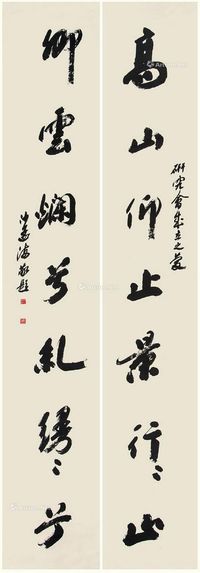 高山仰止景行〻止
研究會成立之慶
卿雲爛兮糺縵〻兮
沙孟海敬題